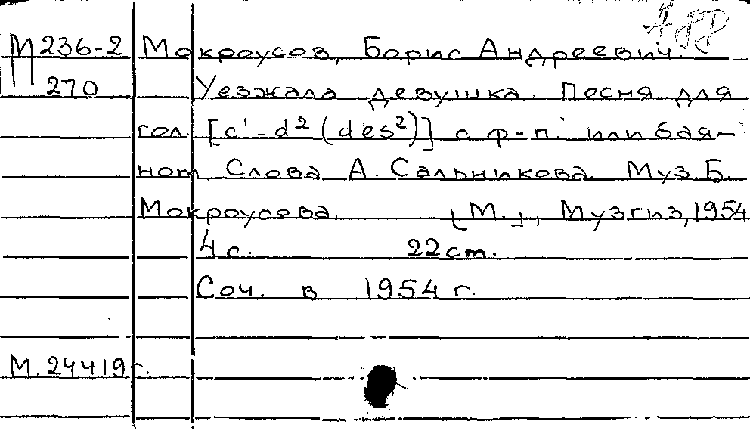 М 236-2 Мокроусов, Борис Андреевич.
270 Уезжала девушка. Песня для
гол. [c'-d² (des²)] с ф-п. или бая-
ном Слова А. Сальникова. Муз. Б.
Мокроусова. [М.], Музгиз, 1954
4 с. 22 см.
Соч. в 1954 г.
М. 24419 г.